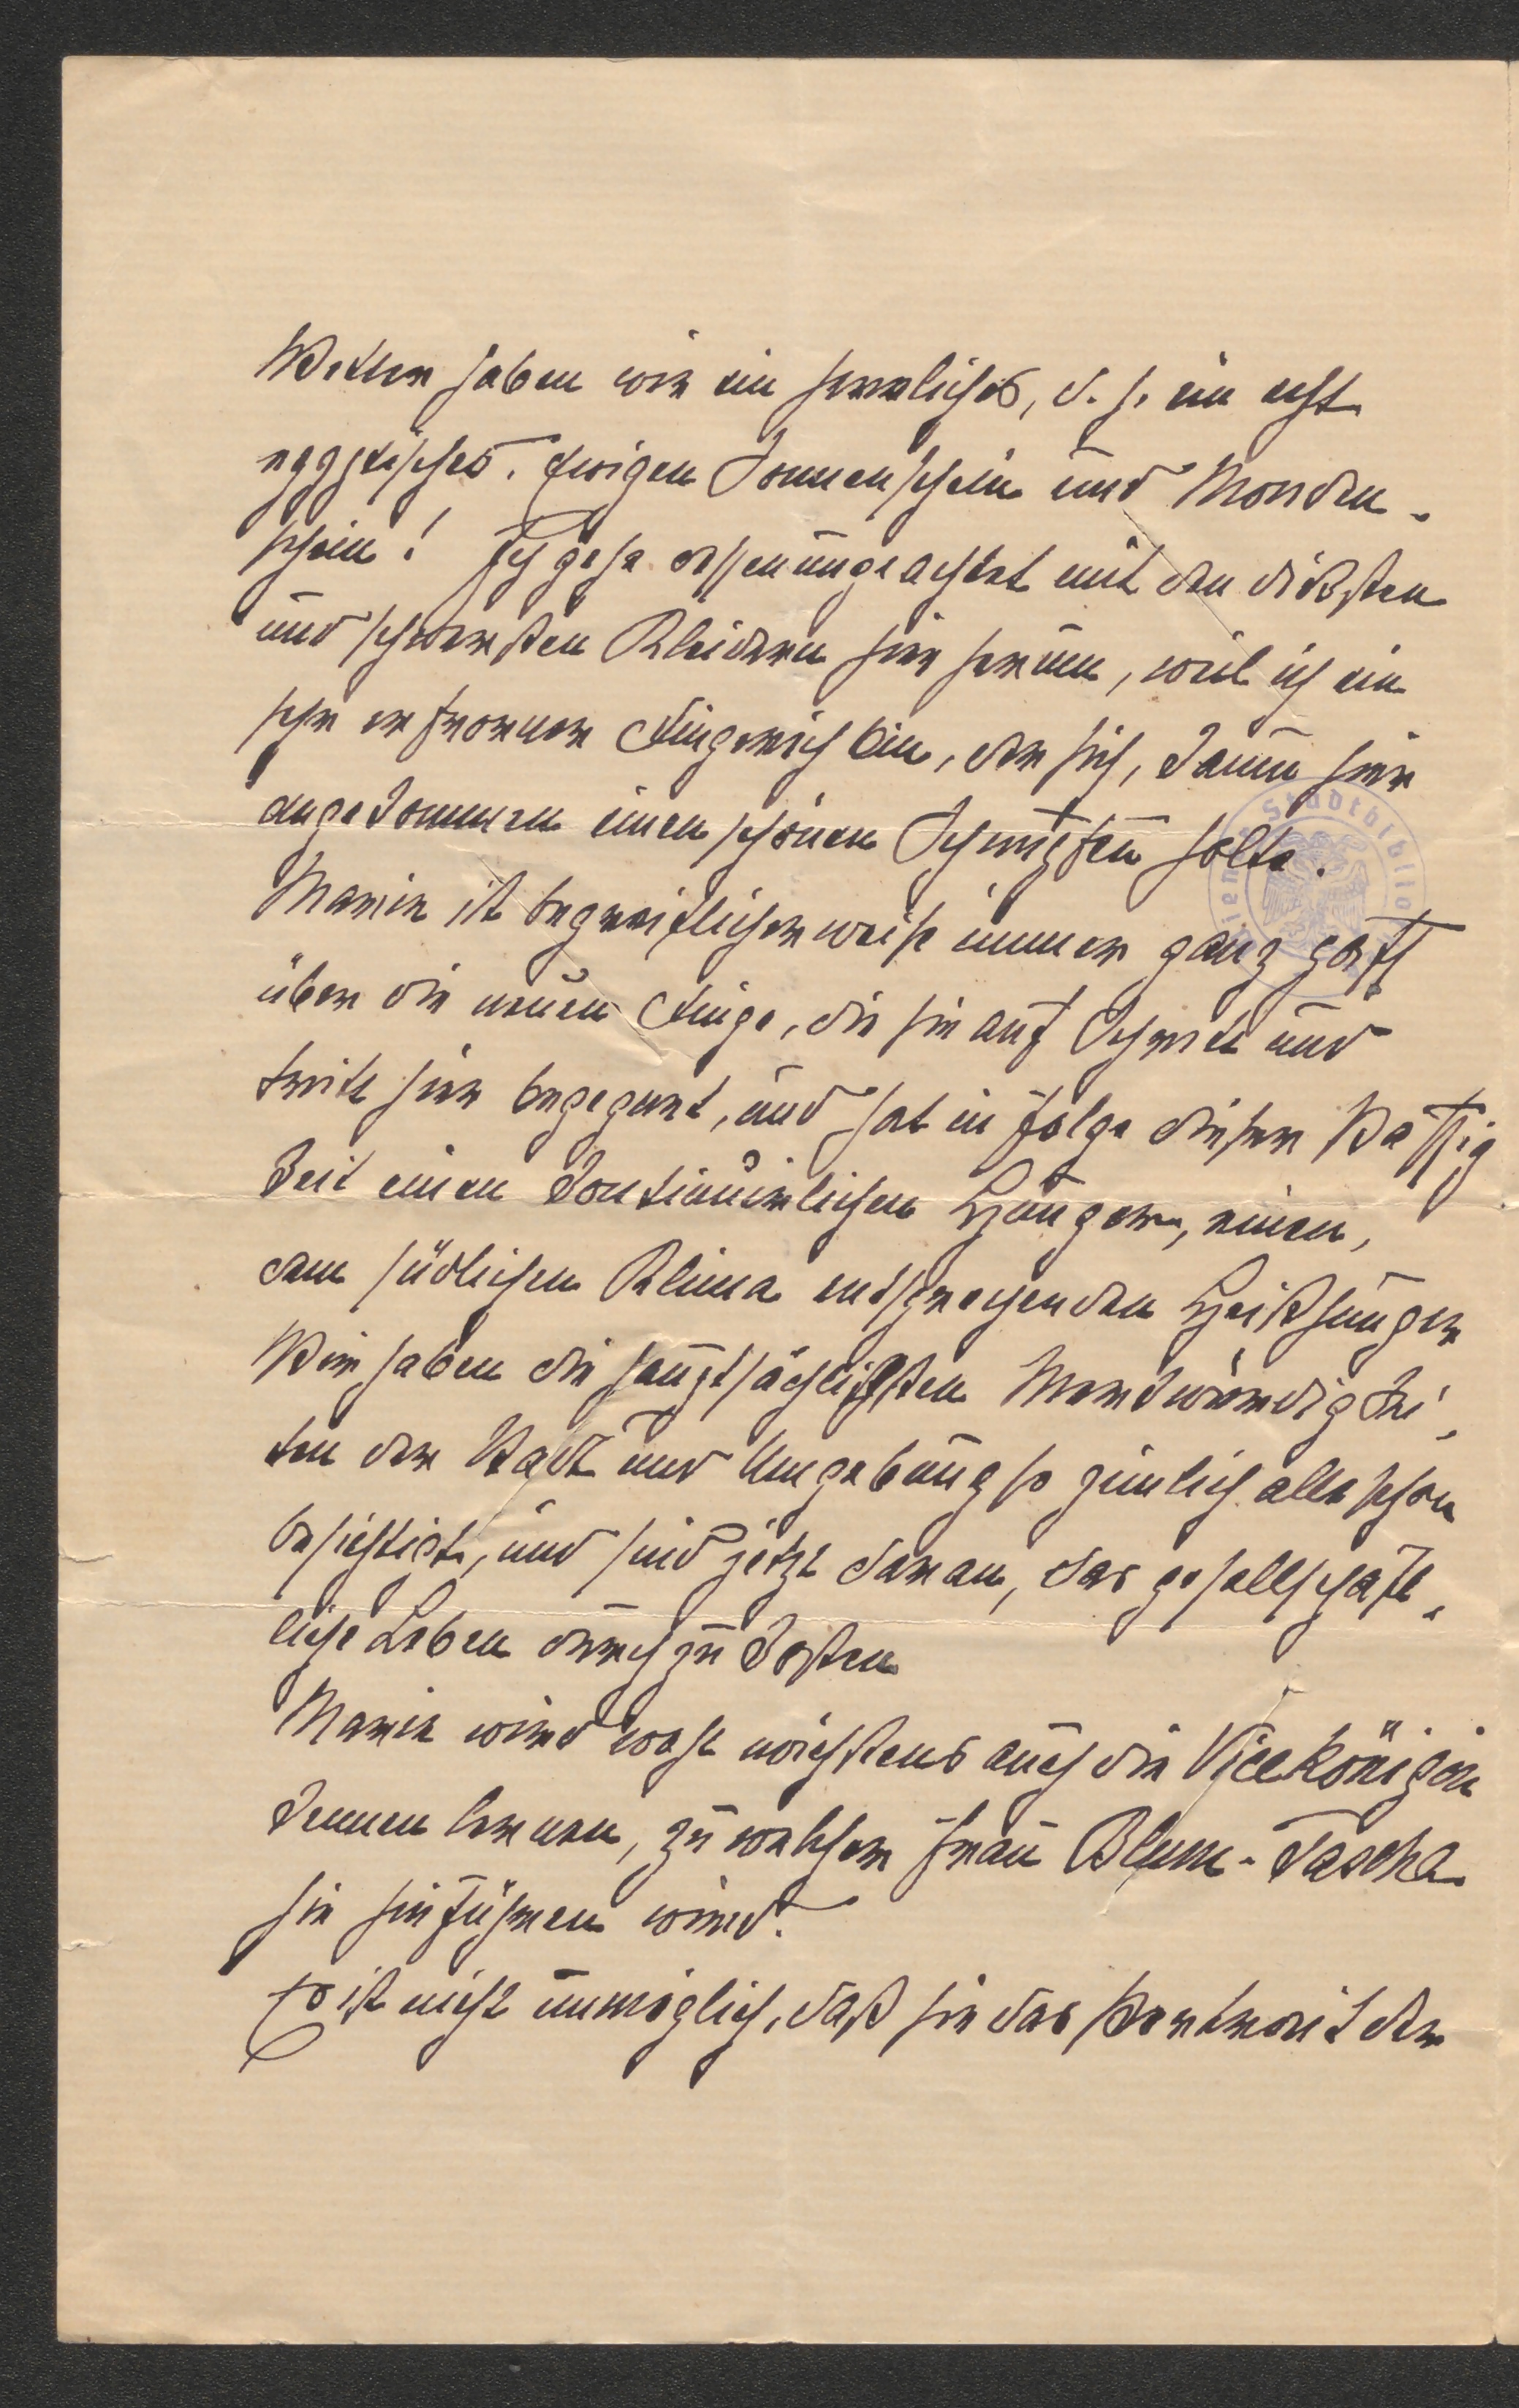 Wetter haben wir ein herrliches, d. h. ein echt
egyptisches. Ewigen Sonnenschein und Monden-
schein! Ich gehe dessenungeachtet mit den dicksten
und schwersten Kleidern hier herum, weil ich ein
sehr erfrorner Jüngerich bin, der sich, kaum hier
angekommen einen schönen Schnupfen holte.
Marie ist begreiflicherweise immer ganz paff
über die neuen Dinge, die sie auf Schritt und
tritt hier begegnet, und hat in Folge dieser Paffig
keit einen kontinuirlichen Hunger, einen,
dem südlichen Klima entsprechenden Heißhunger
Wir haben die hauptsächlichsten Merkwürdigkei-
ten der Stadt und Umgebung so zimlich alle schon
besichtigt, und sind jetzt daran, das gesellschaft-
liche Leben durchzu kosten
Marie wird wohl nächstens auch die Vicekönigin
kennen lernen, zu welcher Frau Blum-Pascha
sie hinführen wird.
Es ist nicht unmöglich, daß sie das Portrait der
Stadtbiblio